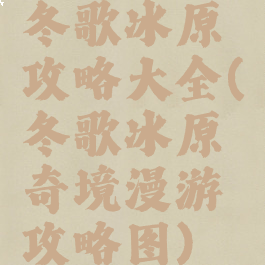 冬歌冰原
攻略大全(
冬歌冰原
奇境漫游
攻略图)